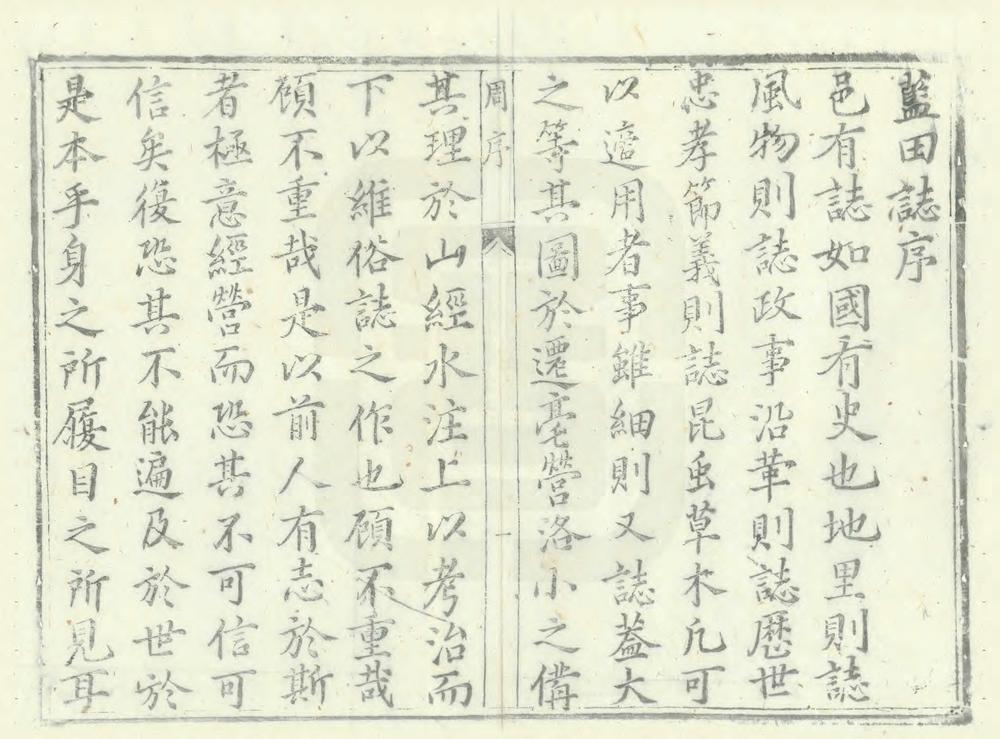 藍田誌序
邑有誌如國有史也地里則誌
風物則誌政事沿革則誌歷世
忠孝節義則誌昆虫草木凡可
以適用者事雖細則又誌蓋大
之等其圖於遷亳營洛小之備
周序
一
其理於山經水注上以考治而
下以維俗誌之作也顧不重哉
顧不重哉是以前人有志於斯
者極意經營而恐其不可信可
信矣復恐其不能遍及於世於
是本乎身之所履目之所見耳